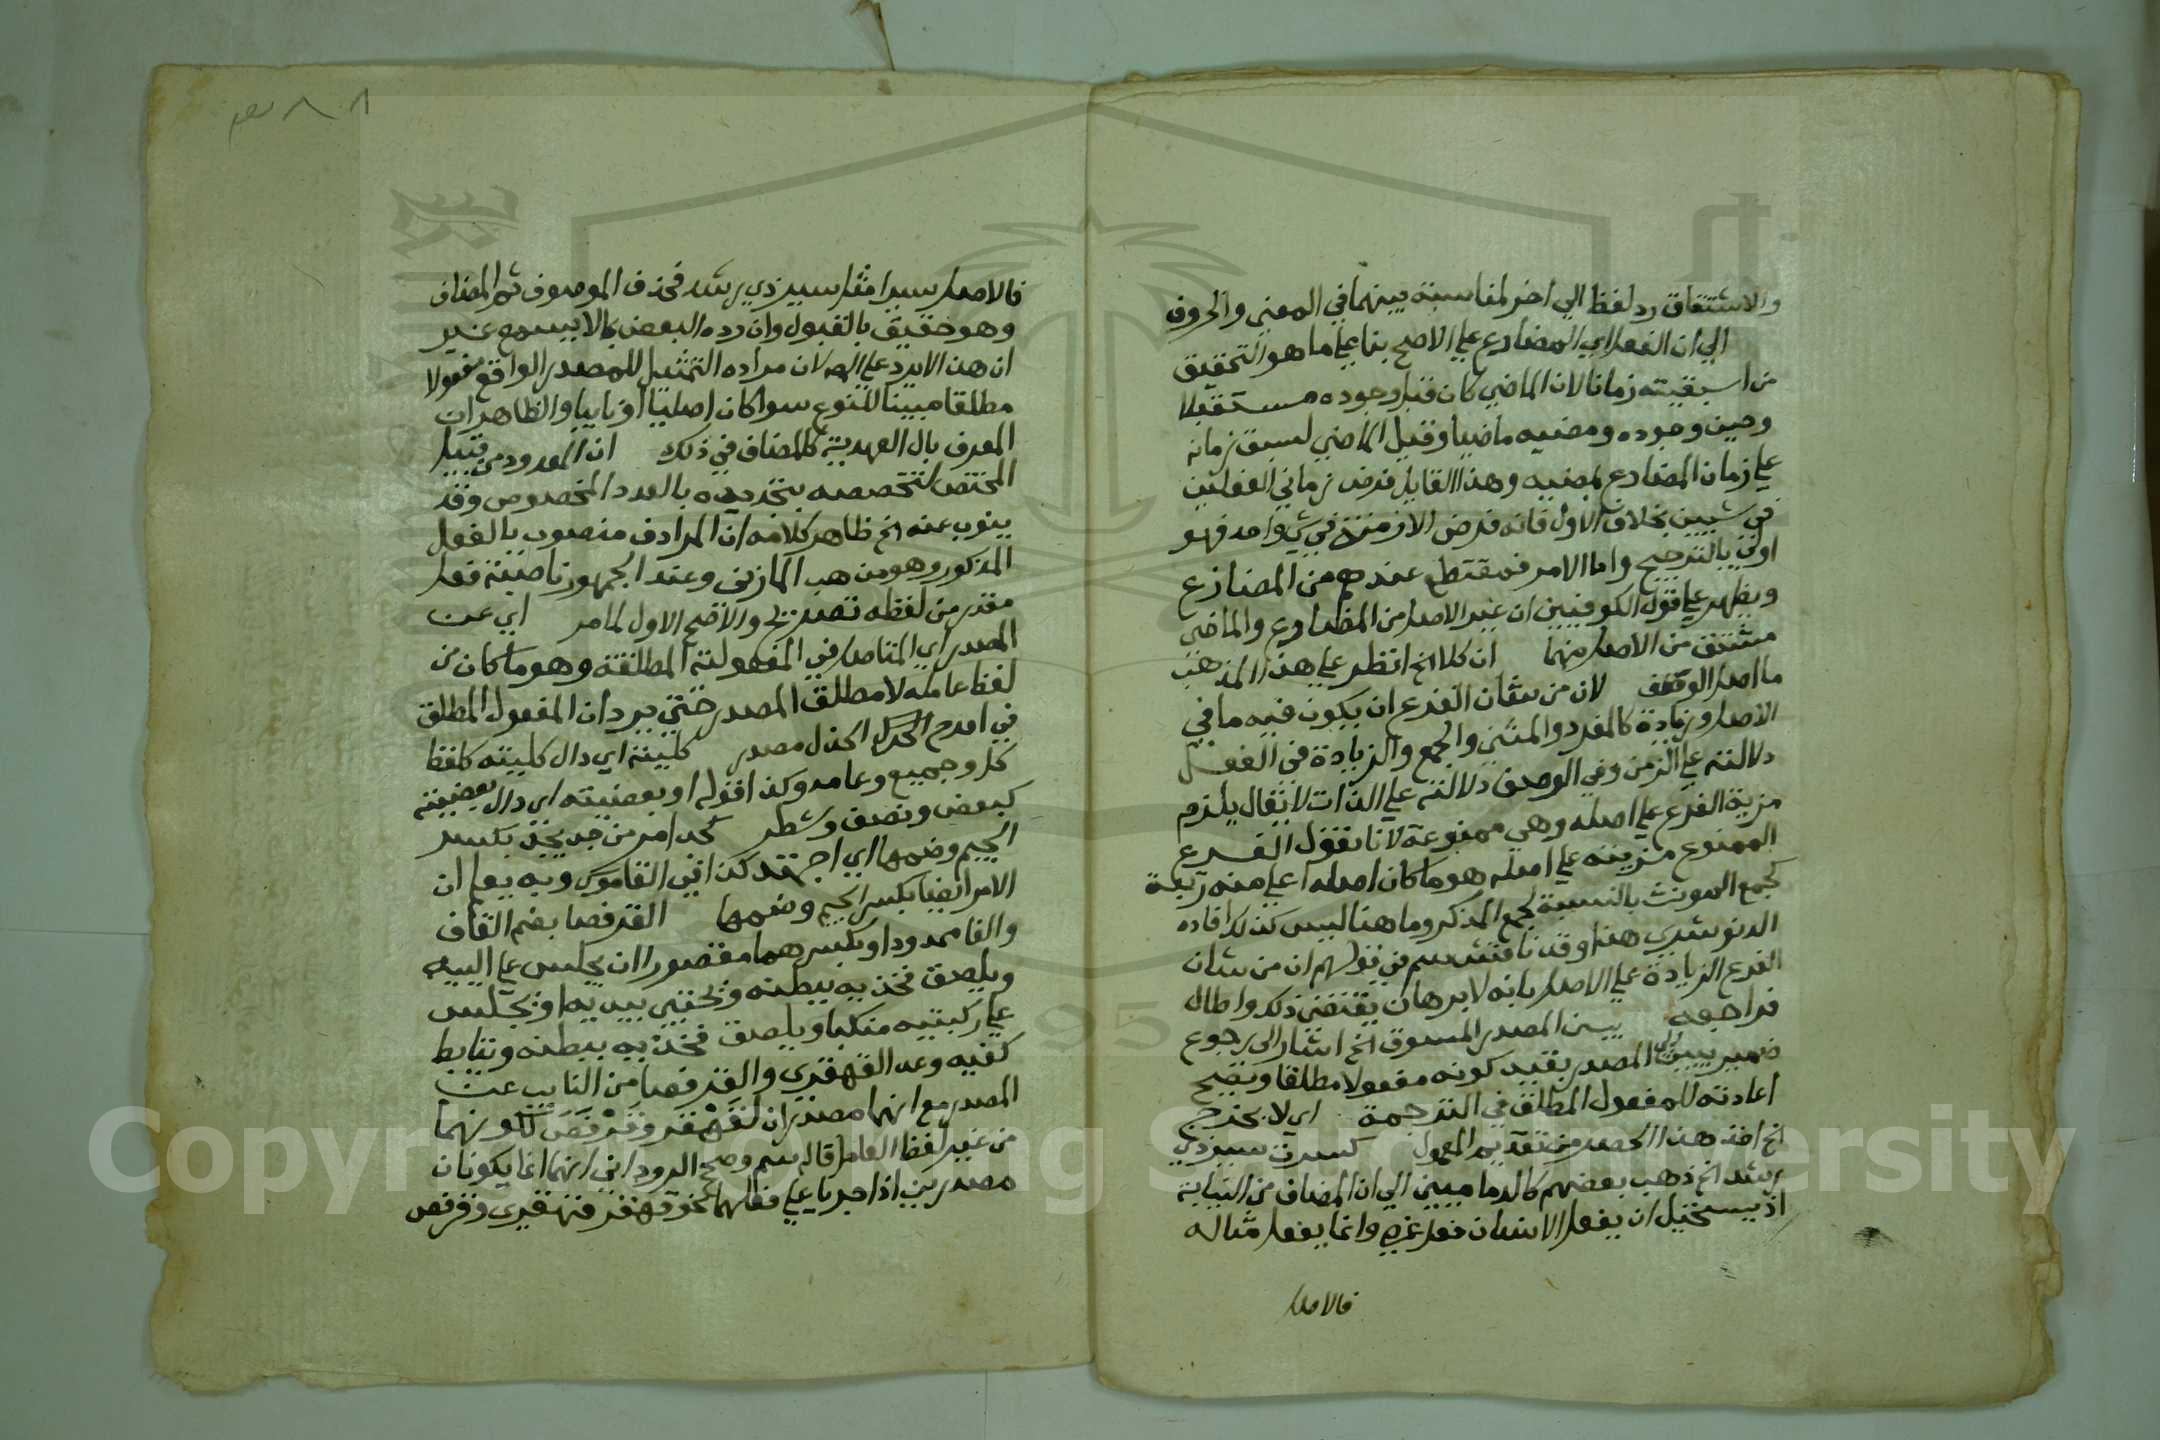 والاشتقاق رد لفظ الي اخر لمناسبة بينهما في المعني والحروف
الي ان الفعل اي المضارع علي الاصح بنا علي ما هو التحقيق
من اسبقيته زمانا لان الماضي كان قبل وجوده مستقبلا
وحين وجوده ومضيه ماضيا وقيل الماضي لسبق زمانه
علي زمان المضارع لمضيه وهذا القايل فرض زماني الفعلين
في شيين بخلاف الاول فانه فرض الازمنة في شي واحد فهو
اولي بالترجيح واما الامر فمقتطع عندهم من المضارع
ويظهر علي قول الكوفيين ان غير الاصل من المضارع والماضي
مشتق من الاصل منهما ان كلا الخ انظر علي هذا المذهب
ما اصل الوصف لان من شان الفرع ان يكون فيه ما في
الاصل وزيادة كالمفرد والمثني والجمع والزيادة في الفعل
دلالته علي الزمن وفي الوصف دلالته علي الذات لا يقال يلزم
مزية الفرع علي اصله وهي ممنوعة لانا نقول الفرع
الممنوع مزيته علي اصله هو ما كان اصله اعلي منه رتبة
كجمع المونث بالنسبة لجمع المذكر وما هنا ليس كذلك افاده
الدنوشري هذا وقد ناقش سم في قولهم ان من شان
الفرع الزيادة علي الاصل بانه لا برهان يقتضي ذلك واطال
فراجعه يبين المصدر المسوق الخ اشار الي رجوع
ضمير يبين الي المصدر بقيد كونه مفعولا مطلقا ويصح
اعادته للمفعول المطلق في الترجمة اي لا يخرج
الخ اخذ هذا الحصر من تقديم المعمول كسرت سير ذي
رشد الخ ذهب بعضهم كالدماميني الي ان المضاف من النيابة
اذ يستحيل ان يفعل الانسان فعل غيره وانما يفعل مثاله
فالاصل
فالاصل سيرا مثل سير ذي رشد فحذف الموصوف ثم المضاف
وهو حقيق بالقبول وان رده البعض بما لا يسمع غير
ان هذا لا يرد علي المص لان مراده التمثيل للمصدر الواقع مفعولا
مطلقا مبينا للنوع سوا كان اصليا او نايبا والظاهر ان
المعرف بال العهدية كالمضاف في ذلك ان المعدود من قبيل
المختص لتخصصه بتحديده بالعدد المخصوص وقد
ينوب عنه الخ ظاهر كلامه ان المرادف منصوب بالفعل
المذكور وهو مذهب المازني وعند الجمهور ناصبه فعل
مقدر من لفظه تصريح والاصح الاول لما مر اي عن
المصدر اي المتاصل في المفعولية المطلقة وهو ما كان من
لفظ عامله لا مطلق المصدر حتي يرد ان المفعول المطلق
في افرح الجذل الجذل مصدر كليته اي دال كليته كلفظ
كل وجميع وعامه وكذا قوله او بعضيته اي دال بعضيته
كبعض ونصف وشطر كجد امر من جد يجد بكسر
الجيم وضمها اي اجتهد كذا في القاموس وبه يعلم ان
الامر ايضا بكسر الجيم وضمها القرفصا بضم القاف
والفا ممدودا وبكسرهما مقصورا ان يجلس علي اليتيه
ويلصق فخذيه ببطنه ويحتبي بيديه او يجلس
علي ركبتيه منكبا ويلصق فخذيه ببطنه ويتابط
كفيه وعد القهقري والقرفصا من النايب عن
المصدر مع انهما مصدران لقَهْقَرَ وقَرْفَصَ لكونهما
من غير لفظ العامل قاله سم وصحح الروداني انهما انما يكونان
مصدرين اذا جريا علي فعلهما نحو قهقر قهقري وقرفص